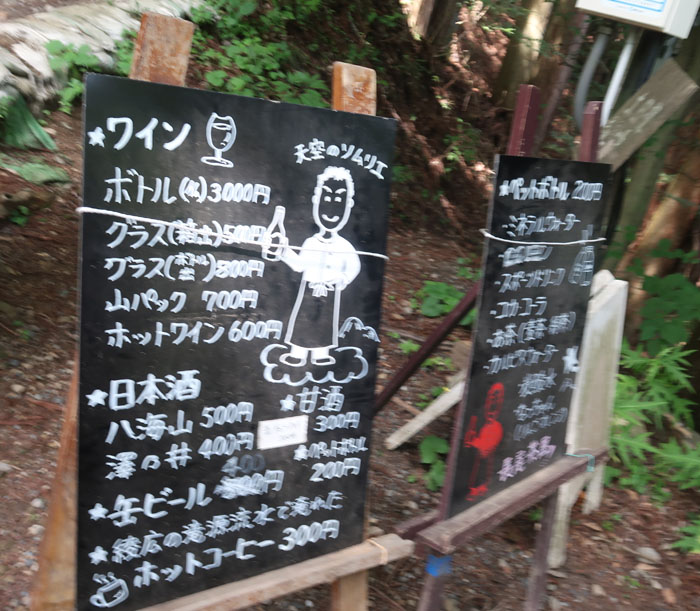 ★ワイン
天空のソムリエ
ボトル(小)3000円
グラス(富士)500円
グラス 800円
山パック 700円
ホットワイン600円
★日本酒
八海山 500円
澤乃井 400円
★缶ビール 400
★甘酒
300円
★ペットボトル
200円
★綾広の滝源流水で淹れた
ホットコーヒー300円
★ペットボトル 200円
・ミネラルウォーター
・スポーツドリンク
・コカコーラ
・お茶
・カルピスウォーター
長尾茶屋